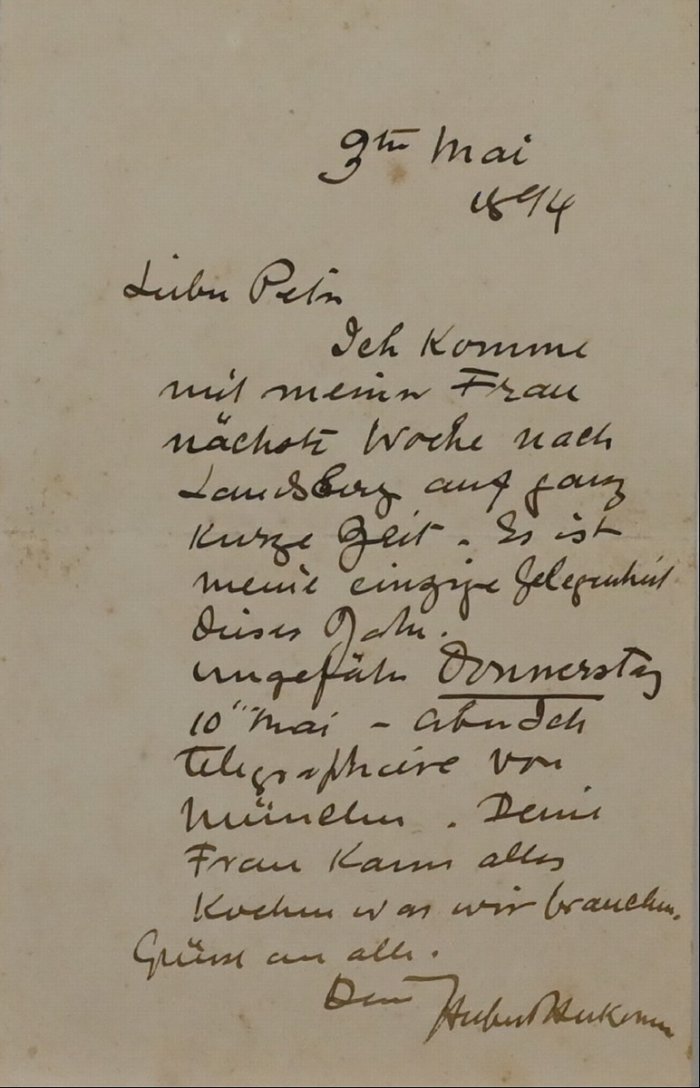 3ten Mai
1894
Lieber Peter
Ich komme
mit meiner Frau
nächste Woche nach
Landsberg auf ganz
kurze Zeit. Es ist
meine einzige Gelegenheit
dieses Jahr.
ungefähr Donnerstag
10ten Mai - aber Ich
telegraphire von
München. Deine
Frau kann alles
kochen was wir brauchen.
Grüsse an alle.
Dein Hubert Herkomer